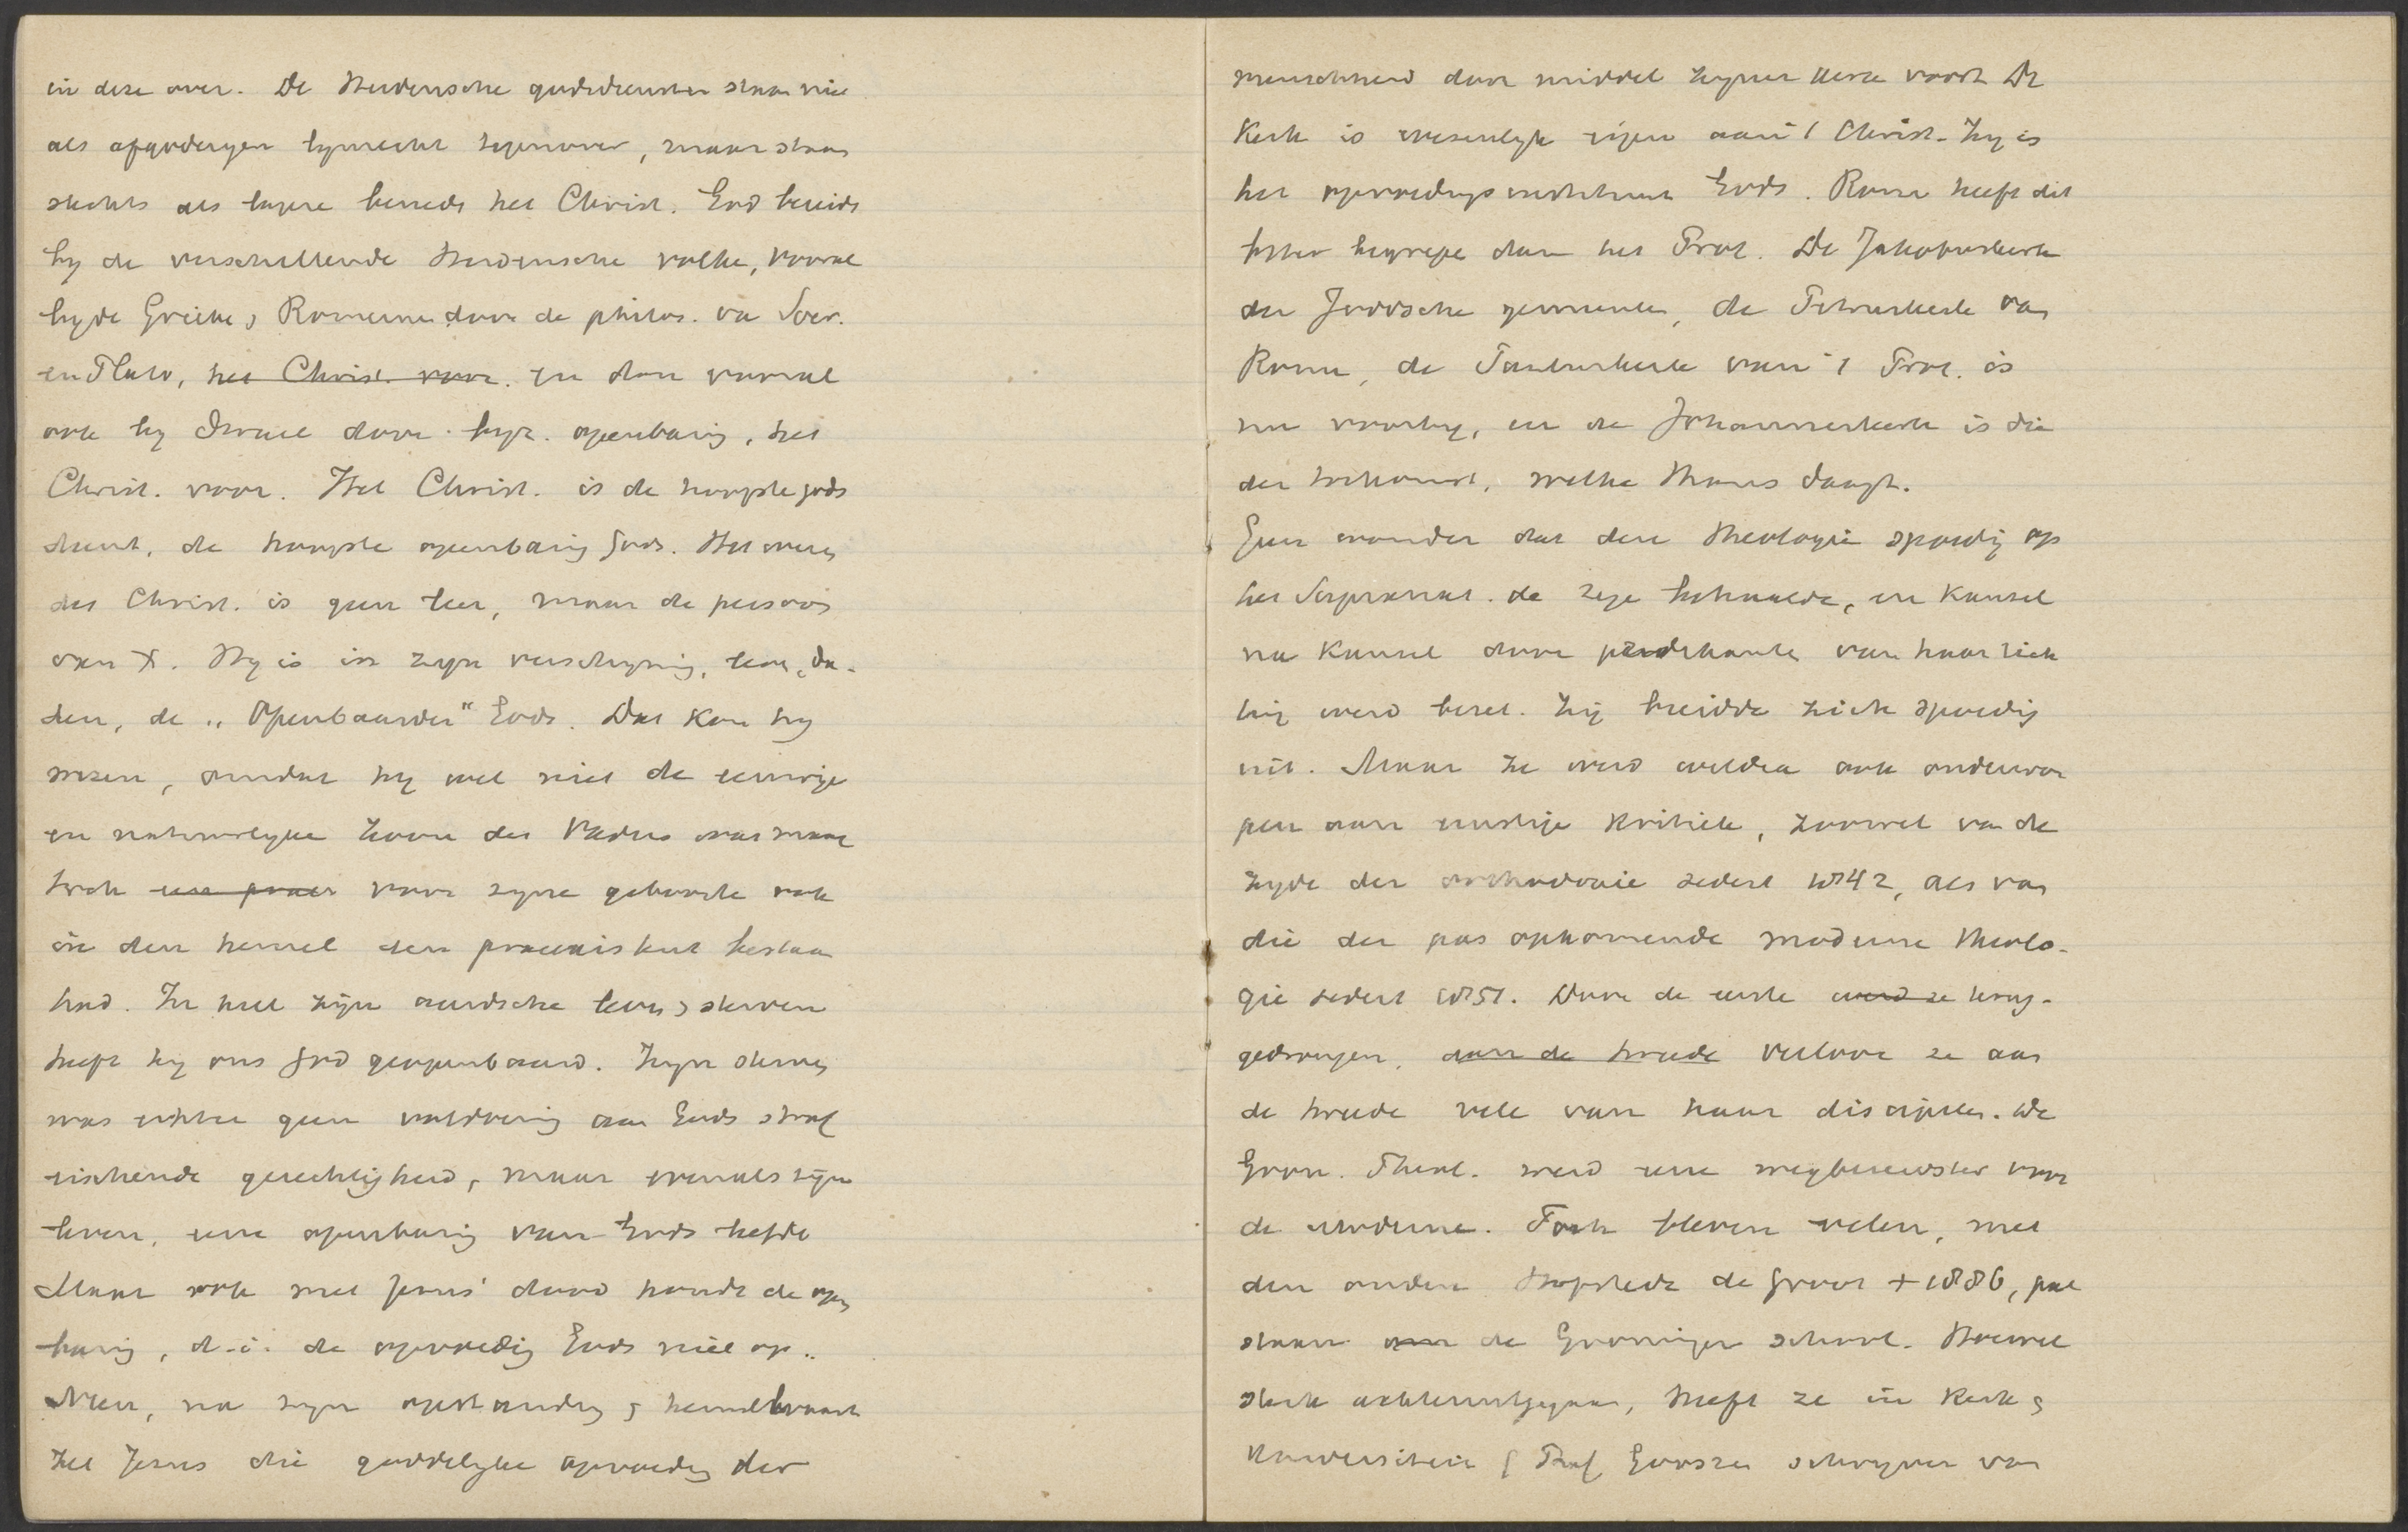 in deze over. De Heidensche godsdiensten staan niet
als afgoderyen lynrecht tegenover, maar staan
slechts als lagere beneden het Christ. God bereidt
by de verschillende Heidensche volke, vooral
by de Grieke, Romeinen door de philos. va Socr.
en Plato, het Christ. voor. en dan vooral
ook by Israel door byz. openbarig, het
Christ. voor. Het Christ. is de hoogste gods
dienst, de hoogste openbarig Gods. Het wezen
des Christ. is geen leer, maar de persoon
van X. Hy is in zyn verschynig, leer, da-
den, de „Openbaarder" Gods. Dat kon hy
wezen, omdat hy wel niet de eeuwige
en natuurlyke Zoon des Vaders was maar
toch een praeex voor zyne geboorte ook
in den hemel een praeexistent bestaan
had. In heel zijn aardsche leven, sterven
heeft hy ons God geopenbaard. Zyn sterven
was echter geen voldoenig aan Gods straf
eischende gerechtigheid, maar evenals zijn
leven, eene openbarig van Gods liefde
Maar ook met Jezus' dood houdt de open
barig, d.i. de opvoedig Gods niet op..
Neen, na zyn opstandig, hemelvaart
zet Jezus die goddelyke opvoedig der
menschheid door middel zyner Kerk voort De
Kerk is wezenlyk eigen aan 't Christ. Zy is
het opvoedigs instituut Gods. Rome heeft dit
beter begrepe dan het Prot. De Jakobuskerk
der Joodsche gemeenten, de Petruskerk van
Rome, de Pauluskerk van 't Prot. is
nu voorby, en de Johanneskerk is die
der toekomst, welke thans daagt.
Geen wonder dat deze Theologie spoedig op
het Supranat. de zege behaalde, en Kansel
na Kansel door predikante van haar rich
tig werd bezet. Zij breidde zich spoedig
uit. Maar ze werd weldra ook onderwor
pen aan ernstige Kritiek, zoowel van de
zyde der orthodoxie sedert 1842, als van
die der pas opkomende moderne theolo-
gie sedert 1851. Door de eerste werd ze terug-
gedrongen, aan de tweede verloor ze aan
de tweede vele van haar discipelen. De
Gron. Theol. werd eene wegbereidster voor
de moderne. Toch bleven velen, met
den ouden Hofstede de Groot + 1886, pal
staan aan de Groninger school. Hoewel
sterk achteruitgegaan, heeft ze in Kerk,
Universiteit (Prof Gooszen schryver van